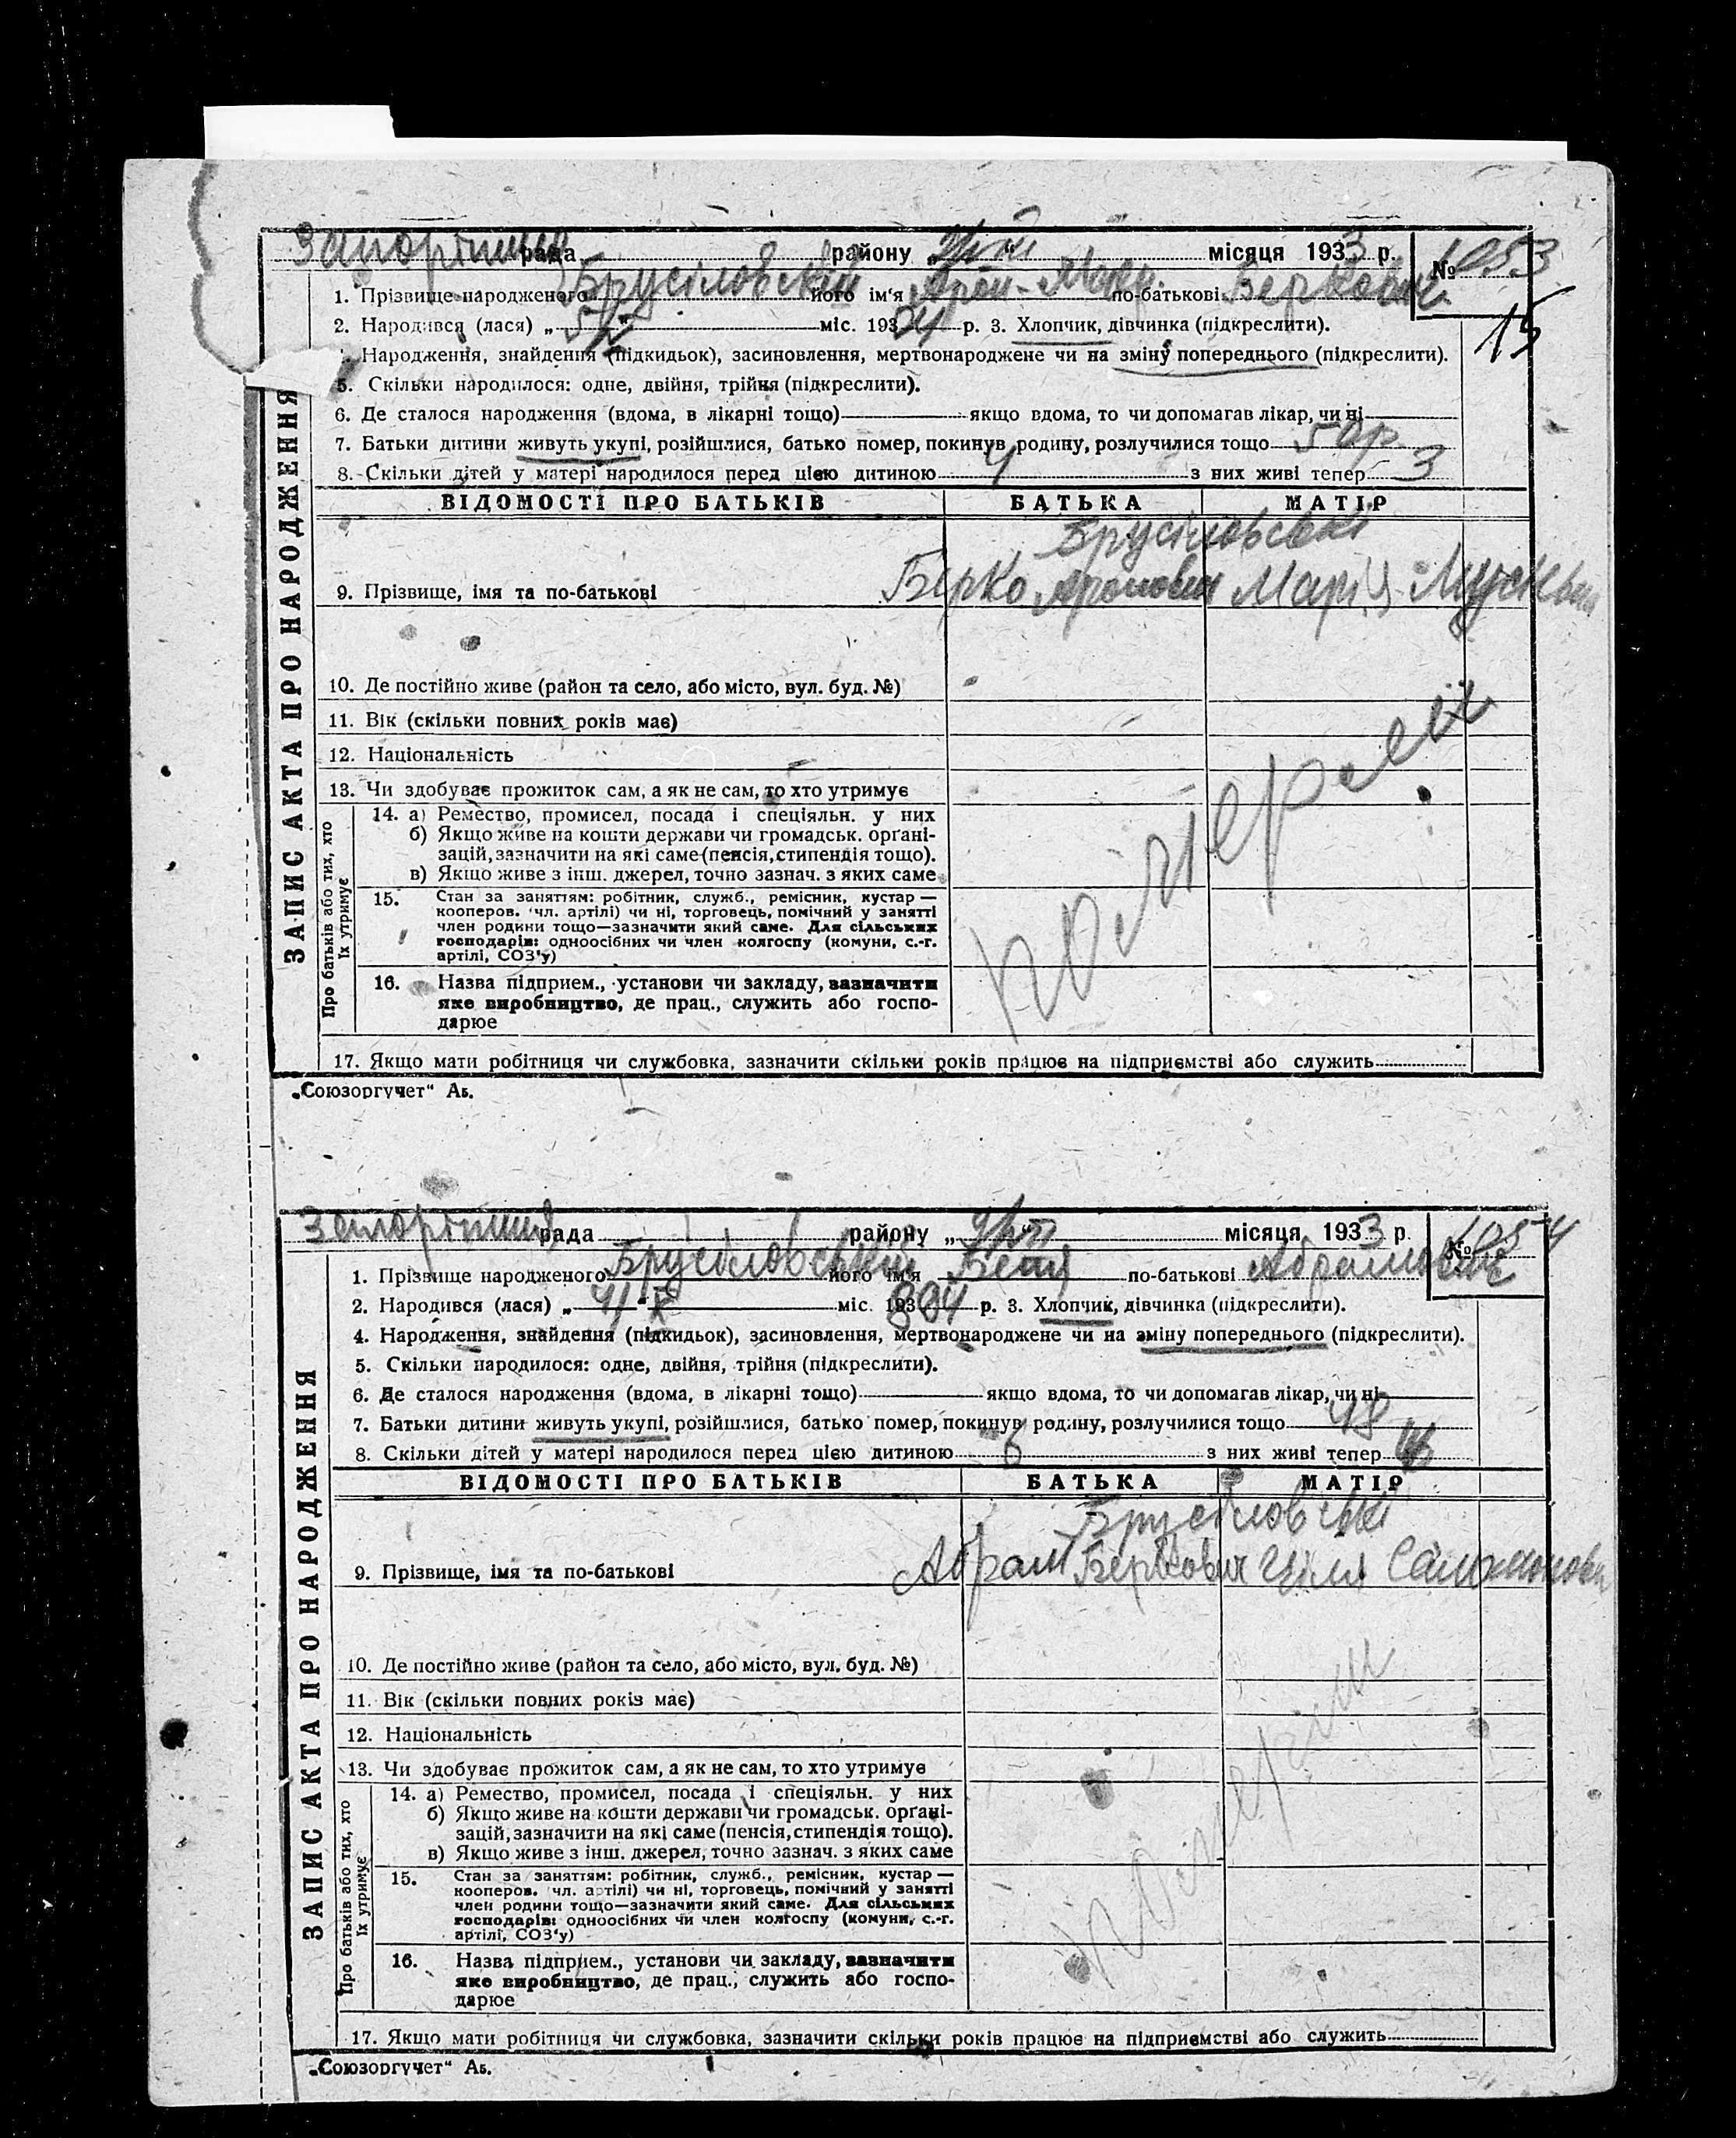 рада району місяця 1933 р. №1053
1. Прізвище народженого Брусіловський його ім'я Арон- по-батькові Беркович
15
2. Народився (лася) „ міс. 193 р. 3. Хлопчик, дівчинка (підкреслити).
Народження, знайдення (підкидьок), засиновлення, мертвонароджене чи на зміну попереднього (підкреслити).
5. Скільки народилося: одне, двійня, трійня (підкреслити).
6. Де сталося народження (вдома, в лікарні тощо) якщо вдома, то чи допомагав лікар, чи ні
7. Батьки дитини живуть укупі, розійшлися, батько помер, покинув родину, розлучилися тощо
8. Скільки дітей у матері народилося перед цією дитиною 4 з них живі тепер 3
ВІДОМОСТІ ПРО БАТЬКІВ БАТЬКА МАТІР
Брусіловські
9. Прізвище, імя та по-батькові Берко Аронович Марія
10. Де постійно живе (район та село, або місто, вул. буд. №)
11. Вік (скільки повних років має)
12. Національність
13. Чи здобуває прожиток сам, а як не сам, то хто утримує
14. а) Ремество, промисел, посада і спеціяльн. у них
б) Якщо живе на кошти держави чи громадськ. орґані-
зацій, зазначити на які саме (пенсія, стипендія тощо).
в) Якщо живе з інш. джерел, точно зазнач. з яких саме
15. Стан за заняттям: робітник, служб., ремісник, кустар —
кооперов. чл. артілі) чи ні, торговець, помічний у занятті
член родини тощо—зазначити який саме. Для сільських
господарів: одноосібних чи член колгоспу (комуни, с.-г.
артілі, СОЗ'у)
16. Назва підприєм., установи чи закладу, зазначити
яке виробництво, де прац., служить або госпо-
дарює
17. Якщо мати робітниця чи службовка, зазначити скільки років працює на підприємстві або служить
ЗАПИС АКТА ПРО НАРОДЖЕННЯ
Про батьків або тих, хто
їх утримує
„Союзоргучет“ Аб.
рада району „ місяця 1933 р. №1054
1. Прізвище народженого Брусіловський його ім'я по-батькові Абрамович
2. Народився (лася) „ міс. 193 р. 3. Хлопчик, дівчинка (підкреслити).
4. Народження, знайдення (підкидьок), засиновлення, мертвонароджене чи на зміну попереднього (підкреслити).
5. Скільки народилося: одне, двійня, трійня (підкреслити).
6. Де сталося народження (вдома, в лікарні тощо) якщо вдома, то чи допомагав лікар, чи ні
7. Батьки дитини живуть укупі, розійшлися, батько помер, покинув родину, розлучилися тощо
8. Скільки дітей у матері народилося перед цією дитиною 6 з них живі тепер
ВІДОМОСТІ ПРО БАТЬКІВ БАТЬКА МАТІР
Брусіловські
9. Прізвище, імя та по-батькові Абрам Беркович Ціля
10. Де постійно живе (район та село, або місто, вул. буд. №)
11. Вік (скільки повних років має)
12. Національність
13. Чи здобуває прожиток сам, а як не сам, то хто утримує
14. а) Ремество, промисел, посада і спеціяльн. у них
б) Якщо живе на кошти держави чи громадськ. орґані-
зацій, зазначити на які саме (пенсія, стипендія тощо).
в) Якщо живе з інш. джерел, точно зазнач. з яких саме
15. Стан за заняттям: робітник, служб., ремісник, кустар —
кооперов. чл. артілі) чи ні, торговець, помічний у занятті
член родини тощо—зазначити який саме. Для сільських
господарів: одноосібних чи член колгоспу (комуни, с.-г.
артілі, СОЗ'у)
16. Назва підприєм., установи чи закладу, зазначити
яке виробництво, де прац., служить або госпо-
дарює
17. Якщо мати робітниця чи службовка, зазначити скільки років працює на підприємстві або служить
ЗАПИС АКТА ПРО НАРОДЖЕННЯ
Про батьків або тих, хто
їх утримує
„Союзоргучет“ Аб.